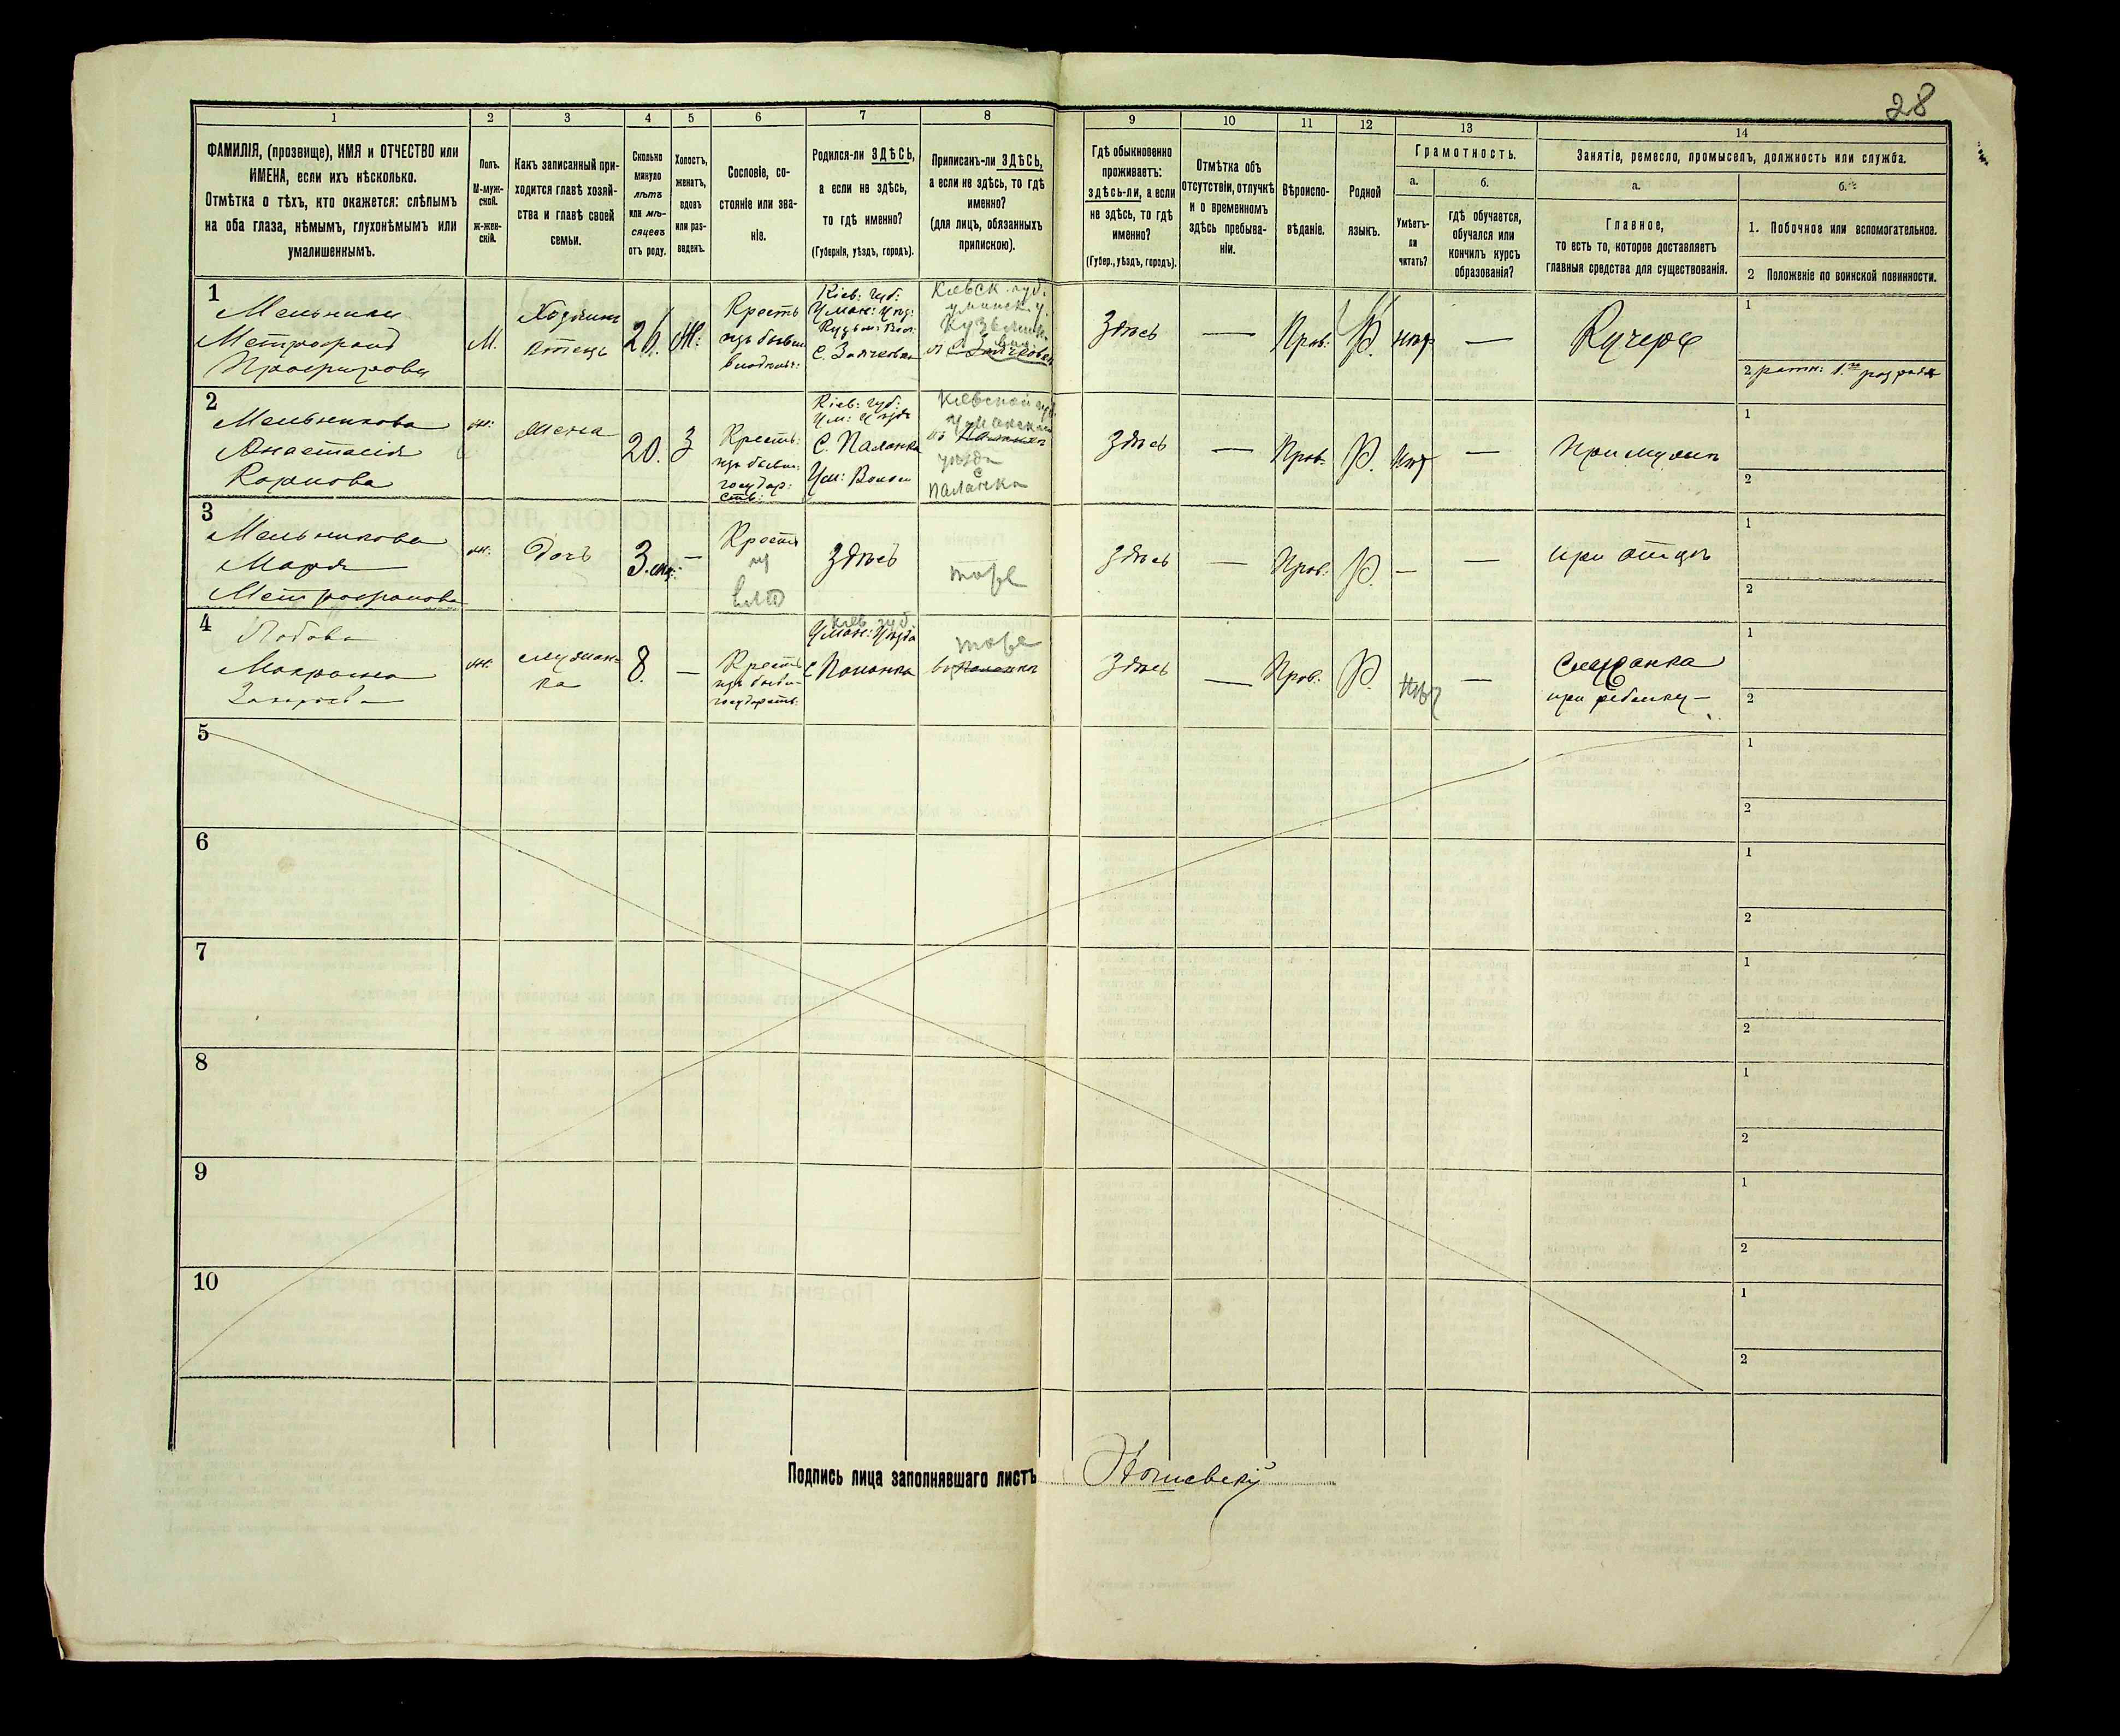 28
1 2 3 4 5 6 7 8 9 10 11 12 13 14
ФАМИЛІЯ, (прозвище), ИМЯ и ОТЧЕСТВО или
ИМЕНА, если ихъ нѣсколько.
Отмѣтка о тѣхъ, кто окажется: слѣпымъ
на оба глаза, нѣмымъ, глухонѣмымъ или
умалишеннымъ.
Полъ.
М-муж-
ской.
Ж-жен-
скій.
Какъ записанный при-
ходится главѣ хозяй-
ства и главѣ своей
семьи.
Сколько
минуло
лѣтъ
или мѣ-
сяцевъ
отъ роду.
Холостъ,
женатъ,
вдовъ
или раз-
веденъ.
Сословіе, со-
стояніе или зва-
ніе.
Родился-ли ЗДѢСЬ,
а если не здѣсь,
то гдѣ именно?
(Губернія, уѣздъ, городъ).
Приписанъ-ли ЗДѢСЬ,
а если не здѣсь, то гдѣ
именно?
(для лицъ, обязанныхъ
припискою).
Гдѣ обыкновенно
проживаетъ:
здѣсь-ли, а если
не здѣсь, то гдѣ
именно?
(Губер., уѣздъ, городъ).
Отмѣтка объ
отсутствіи, отлучкѣ
и о временномъ
здѣсь пребыва-
ніи.
Вѣроиспо-
вѣданіе.
Родной
языкъ.
Грамотность.
а.
Умѣетъ-
ли
читать?
б.
гдѣ обучается,
обучался или
кончилъ курсъ
образованія?
Занятіе, ремесло, промыселъ, должность или служба.
а.
Главное,
то есть то, которое доставляетъ
главныя средства для существованія.
б.
1. Побочное или вспомогательное.
2 Положеніе по воинской повинности.
1
Мельникъ
Митрофанъ
М.
Хозяинъ
26.
Ж.
Кресть
изъ бывш
Кіев: губ:
Уман: Уѣз:
Кіевск. губ.
Здѣсь
—
Прав:
Р.
нѣтъ
—
Кучеръ
1
2 ратн: 1го разряда
2
Мельникова
Анастасія
Карпова
Ж:
Жена
20.
З
Кресть:
изъ бывш:
государ:
ств:
Кіев: губ:
Ум: Уѣзда
С. Паланка
Ум: Волос
Кіевской губ.
Уманска
уѣзда
с
Паланка
Здѣсь
—
Прав:
Р.
Нѣт
—
При мужѣ
1
2
3
Мельникова
Марія
Митрофанова
Ж:
Дочь
3. мц:
—
Кресть
Здѣсь
тоже
Здѣсь
—
Прав:
Р.
—
—
при отцѣ
1
2
4
Макрына
Захарьева
Ж:
служан-
ка
8.
—
Кресть
изъ бывш
государств:
Кіев. губ.
Уман: Уѣзда
С Паланка
тоже
Здѣсь
—
Прав:
Р.
нѣт
—
Служанка
при ребенку —
1
2
5
1
2
6
1
2
7
1
2
8
1
2
9
1
2
10
1
2
Подпись лица заполнявшаго листъ